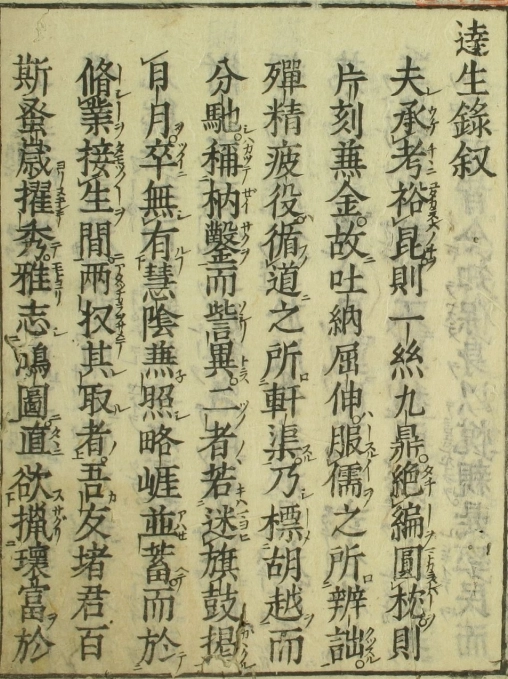 達生錄叙
夫承考裕昆則一絲九鼎絶編圓枕則
片刻兼金故吐納屈伸服儒之所辨詘
殫精疲役循道之所軒渠乃標胡越而
分馳稱枘鑿而訾異二者若迷旗鼓揭
日月卒無有慧隂兼照略崕並蓄而於
脩業接生間兩㧑其取者吾友堵君百
斯蚤歲擢秀雅志鳴圖直欲擸瓌富於